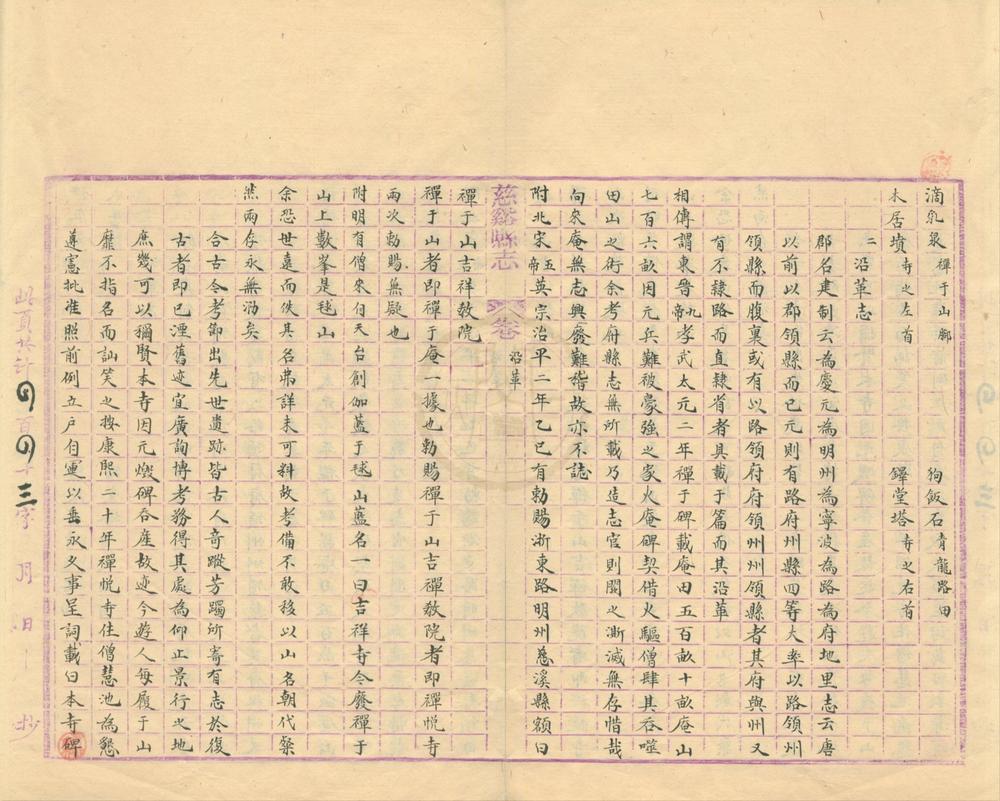 滴乳泉 禪于山腳 狗飯石 青龍路田
木居墳 寺之左首 鐸堂塔 寺之右首
二沿革志
郡名建制云為慶元為明州為寧波為路為府地里志云唐
以前以郡領縣而已元則有路府州縣四等大率以路領州
領縣而腹裏或有以路領府府領州州領縣者其府與州又
有不隸路而直隸省者具載于篇而其沿革
相傳謂東晉九帝孝武太元二年禪于碑載庵田五百畝十畝庵山
七百六畝因元兵難被豪強之家火庵碑契借火驅僧肆其吞噬
田山之術余考府縣志無所載乃造志官則闕之漸滅無存惜哉
向來庵無志興廢難稽故亦不誌
附北宋五帝英宗治平二年乙巳有勅賜浙東路明州慈溪縣額曰
慈谿縣志 卷 沿革
禪于山吉祥教院
禪于山者即禪于庵一據也勅賜禪于山吉禪教院者即禪悅寺
兩次勅賜無疑也
附明有僧來伯天台創伽藍于毬山藍名一曰吉祥寺今廢禪于
山上數峯是毬山
余恐世遠而佚其名弗詳未可料故考備不敢移以山名朝代粲
然兩存永無泐矣
合古今考鄉出先世遺跡皆古人奇蹤芳躅所寄有志於復
古者即已湮舊迹宜廣詢博考務得其處為仰止景行之地
庶幾可以獨賢本寺因元燬碑吞產故迹今遊人每履于山
靡不指名而訕笑之按康熙二十年禪悅寺住僧慧池為懇
遵憲批准照前例立戶自運以垂永久事呈詞載曰本寺碑
此頁共計四百四十三字 月 日 抄